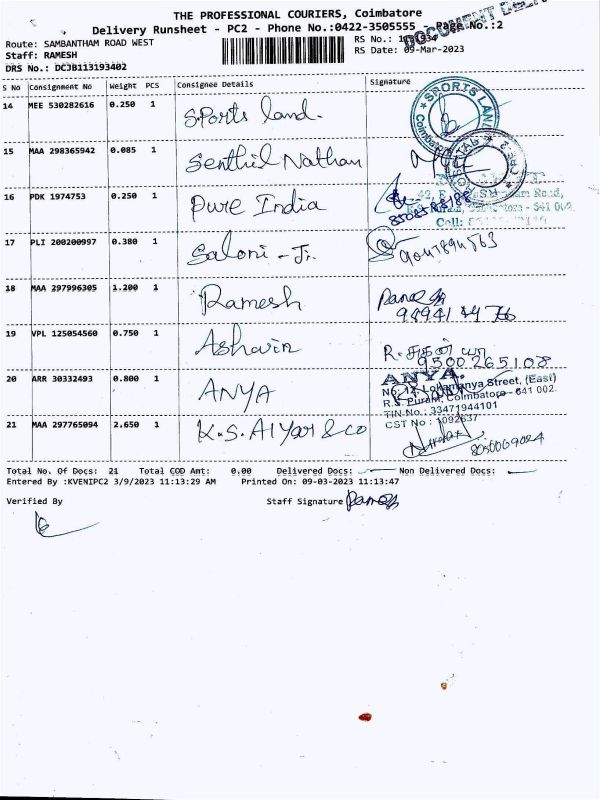 THE PROFESSIONAL COURIERS, Coimbatore
Delivery Runsheet - PC2 - Phone No.:0422-3505555 - Page No.:2
DOCUMENT
Route: SAMBANTHAM ROAD WEST
RS No.:
Staff: RAMESH
RS Date: 09-Mar-2023
DRS No.: DCJB113193402
S No Consignment No Weight PCS Consignee Details Signature
14 MEE 530282616 0.250 1 Sports land.
SPORTS LAND
Coimbatore
15 MAA 298365942 0.085 1 Senthil Nathan
16 PDK 1974753 0.250 1 Pure India
Road,
- 641 002
Cell:
17 PLI 200200997 0.380 1 Saloni - Jr.
18 MAA 297996305 1.200 1 Ramesh
19 VPL 125054560 0.750 1 Ashwin
R. சுதன்யா
9500265108
20 ARR 30332493 0.800 1 ANYA
ANYA.
No: 12, Lokamanya Street, (East)
R.S. Puram, Coimbatore - 641 002.
TIN No : 33471944101
CST No : 1092637
21 MAA 297765094 2.650 1 K.S. Aiyar & Co
8050069024
Total No. Of Docs: 21 Total COD Amt: 0.00 Delivered Docs: Non Delivered Docs:
Entered By :KVENIPC2 3/9/2023 11:13:29 AM Printed On: 09-03-2023 11:13:47
Verified By
Staff Signature Ramesh